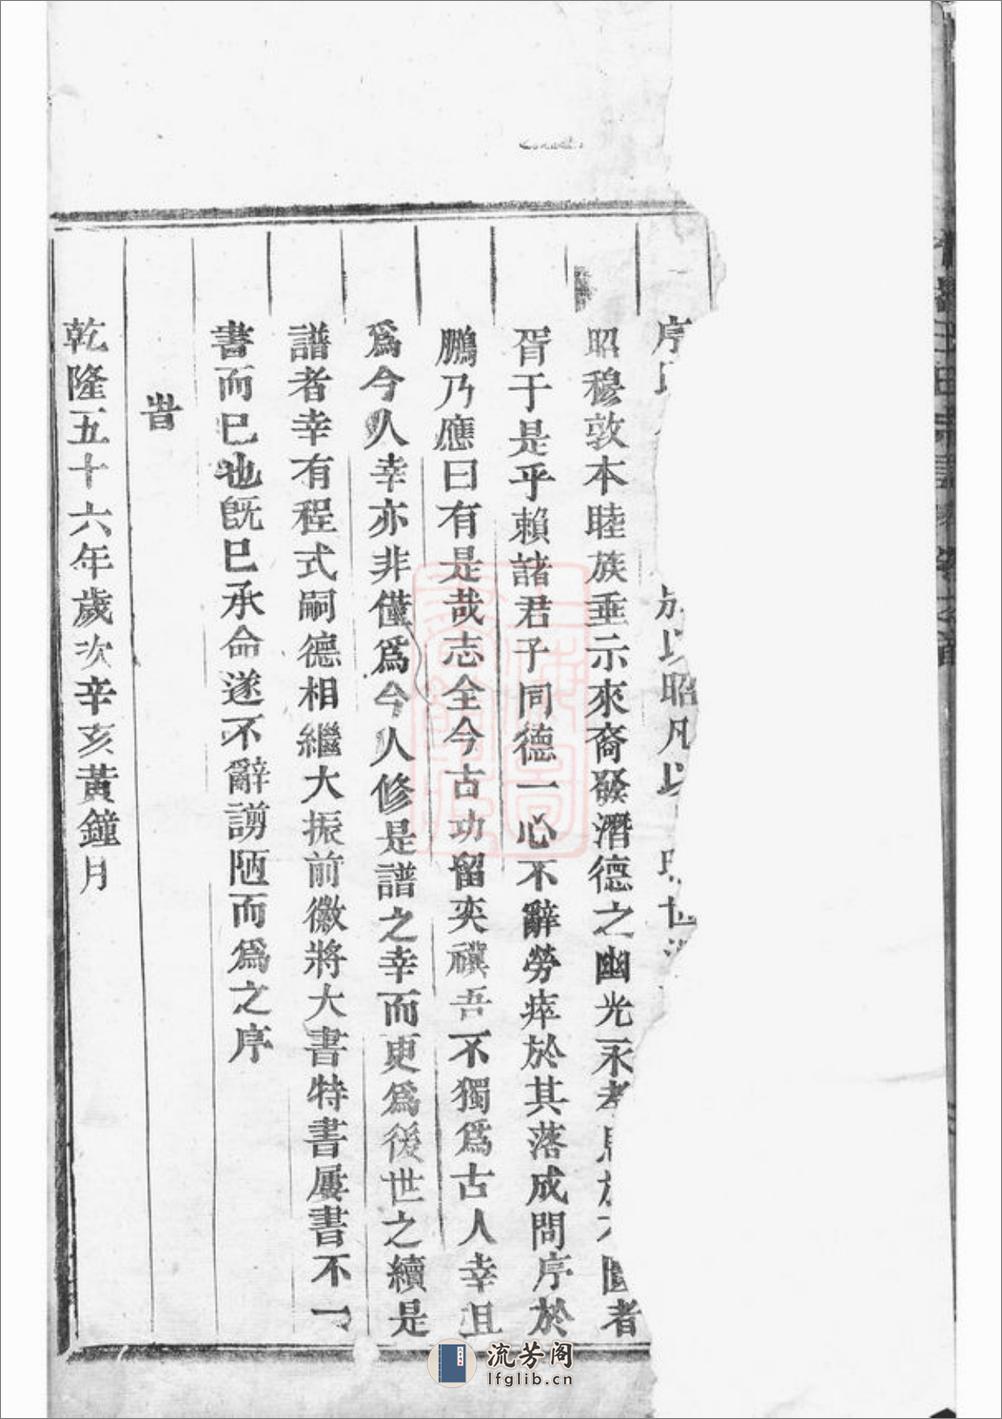 序
以昭凡以
昭穆敦本睦族垂示來裔發潛德之幽光永孝思於不匱者
胥于是乎賴諸君子同德一心不辭勞瘁於其落成問序於
鵬乃應曰有是哉志全今古功留奕禩吾不獨爲古人幸且
爲今人幸亦非僅爲今人修是譜之幸而更爲後世之續是
譜者幸有程式嗣德相繼大振前徽將大書特書屢書不一
書而已也既已承命遂不辭謭陋而爲之序
旹
乾隆五十六年歲次辛亥黃鐘月
流芳阁
lfglib.cn